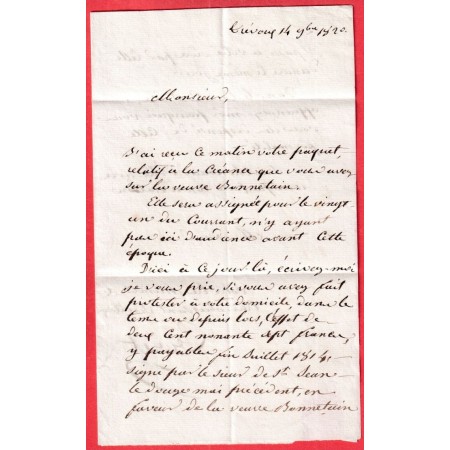 Trévoux 14 9bre 1820.
Monsieur,
J'ai recu ce matin votre paquet,
relatif à la Créance que vous avez
sur la veuve Bonnetain.
Elle sera assignée pour le vingt
un du Courant, n'y ayant
pas ici d'audience avant cette
époque.
D'ici à ce jour là, écrivez-moi
je vous prie, si vous avez fait
protester à votre domicile, dans le
tems ou depuis lors, l'effet de
deux Cent nonante sept francs,
y payable fin Juillet 1814,
signé par le sieur de St. Jean
le douze mai précédent, en
faveur de la veuve Bonnetain